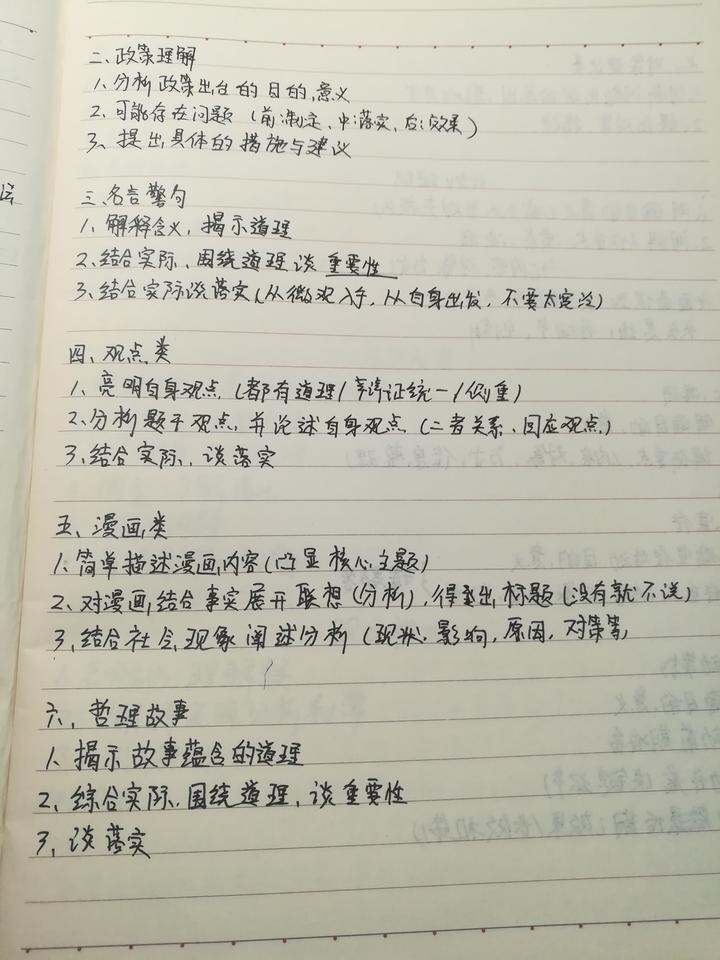 二、政策理解
1、分析政策出台的目的,意义
2、可能存在问题(前:制定、中:落实、后:效果)
3、提出具体的措施与建议
三、名言警句
1、解释含义,揭示道理
2、结合实际、围绕道理谈重要性
3、结合实际谈落实(从微观入手,从自身出发,不要太宽泛)
四、观点类
1、亮明自身观点(都有道理/辩证统一/侧重)
2、分析题干观点,并论述自身观点(二者关系、回应观点)
3、结合实际,谈落实
五、漫画类
1、简单描述漫画内容(凸显核心主题)
2、对漫画结合事实展开联想(分析),得出标题(没有就不说)
3、结合社会现象阐述分析(现状、影响,原因,对策等)
六、哲理故事
1、揭示故事蕴含的道理
2、综合实际,围绕道理,谈重要性
3、谈落实